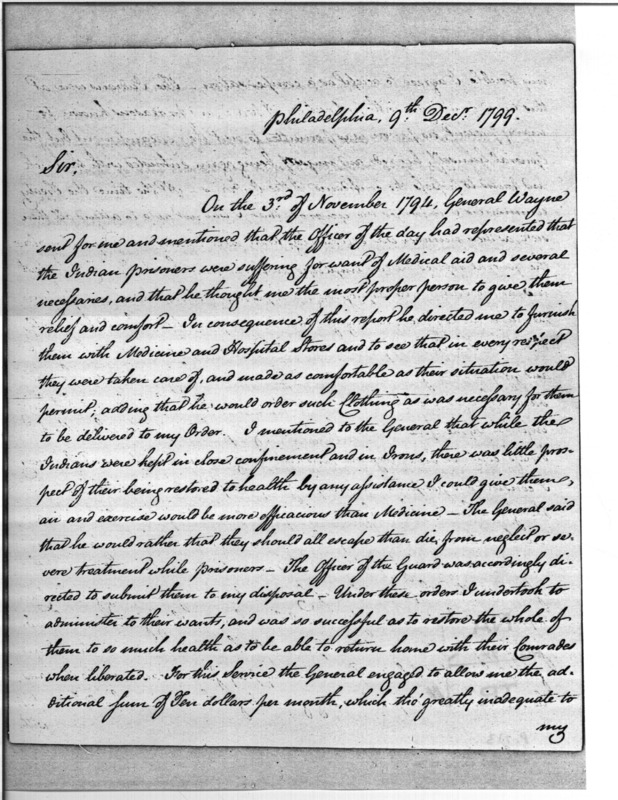 Philadelphia, 9th Decr. 1799.
Sir,
On the 3rd of November 1794, General Wayne
sent for me and mentioned that the Officer of the day had represented that
the Indian prisoners were suffering for want of Medical aid and several
necessaries, and that he thought me the most proper person to give them
relief and comfort – In consequence of this report he directed me to furnish
them with Medicine and Hospital Stores and to see that in every respect
they were taken care of, and made as comfortable as their situation would
permit; adding that he would order such Clothing as was necessary for them
to be delivered to my Order. I mentioned to the General that while the
Indians were kept in close confinement and in Irons, there was little pros-
pect of their being restored to health by any assistance I could give them,
air and exercise would be more efficacious than Medicine – The General said
that he would rather that they should all escape than die from neglect or se-
vere treatment while prisoners – The Officer of the Guard was accordingly di-
rected to submit them to my disposal – Under these orders I undertook to
administer to their wants, and was so successful as to restore the whole of
them to so much health as to be able to return home with their Comrades
when liberated. For this Service the General engaged to allow me the ad-
ditional sum of Ten dollars per month, which tho' greatly inadequate to
my